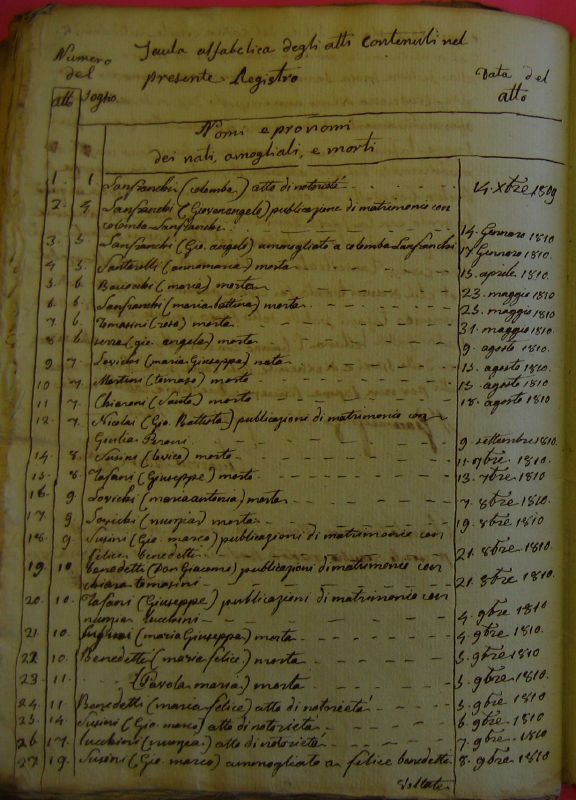 Numero del Taula alfabetica degli atti Contenuti nel
presente Registro Data del
atti foglio atto
Nomi e pronomi
dei nati, amogliati, e morti
1. 1 Lanfranchi (colomba) atto di notorietè 14. Xbre 1809
2. 4 Lanfranchi (Giovanangelo) publicazione di matrimonio con
colomba Lanfranchi 14. Gennaro 1810
3. 5 Lanfranchi (Gio. angelo) amonogliato a colomba Lanfranchi 17 Gennaro 1810.
4 5. Santarelli (annamaria) morta 15. aprile. 1810.
5 6 (maria) morta 23. maggio 1810
6. 6. Lanfranchi (maria battina) morta 25. maggio 1810
7 6. Tomasini (rosa) morta 31. maggio 1810.
8 6 serra (gio. angelo) morto 9. agosto 1810.
9 7. Lovichi (maria Giuseppa) nata 13. agosto 1810.
10 7. Martini (tomaso) morto 15. agosto 1810
11 7. Chiaroni (Santo) morto 18. agosto 1810
12. 7. Nicolai (Gio. Battista) publicazioni di matrimonio con
Giulia 9. settembre 1810.
14. 8. Susini (lovico) morto 11. 7bre. 1810.
15. 8 Tafani (Giuseppe) morto 13. 7bre 1810.
16. 9. Lovichi (maria antonia) morta 7. 8bre 1810.
17. 9. Lovichi (nunzia) morta 19. 8bre 1810
18. 9 Susini (Gio. marco) publicazioni di matrimonio con
felice benedetti 21. 8bre 1810.
19. 10. Benedetti (Don Giacomo) publicazioni di matrimonio con
chiara tomasini 21. 8bre 1810.
20. 10. Tafani (Giuseppe) publicazioni di matrimonio con
nunzia lucchini 4. 9bre 1810
21. 10. (maria Giuseppa) morta 4. 9bre 1810.
22 10. Benedetti (maria felice) morta 5. 9bre 1810.
23. 11. (Pavola maria) morta 5. 9bre 1810
24. 11 Benedetti (maria felice) atto di notorietà 5. 9bre 1810
25. 14. Susini (Gio marco) atto di notorietà 6 9bre 1810
26 17. lucchini (nunzia) atto di notorietà 7. 9bre 1810
27 19. Susini (Gio. marco) amonogliato a felice benedetti 8. 9bre 1810
voltate